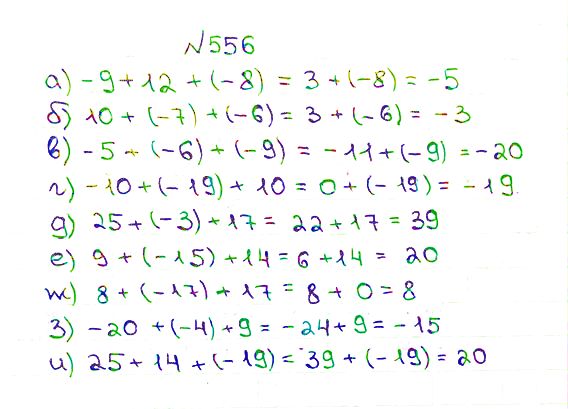 №556
а) -9+12+(-8) = 3+(-8) = -5
б) 10+(-7)+(-6) = 3+(-6) = -3
в) -5+(-6)+(-9) = -11+(-9) = -20
г) -10+(-19)+10 = 0+(-19) = -19
д) 25+(-3)+17 = 22+17 = 39
е) 9+(-15)+14 = 6+14 = 20
ж) 8+(-17)+17 = 8+0 = 8
з) -20+(-4)+9 = -24+9 = -15
и) 25+14+(-19) = 39+(-19) = 20